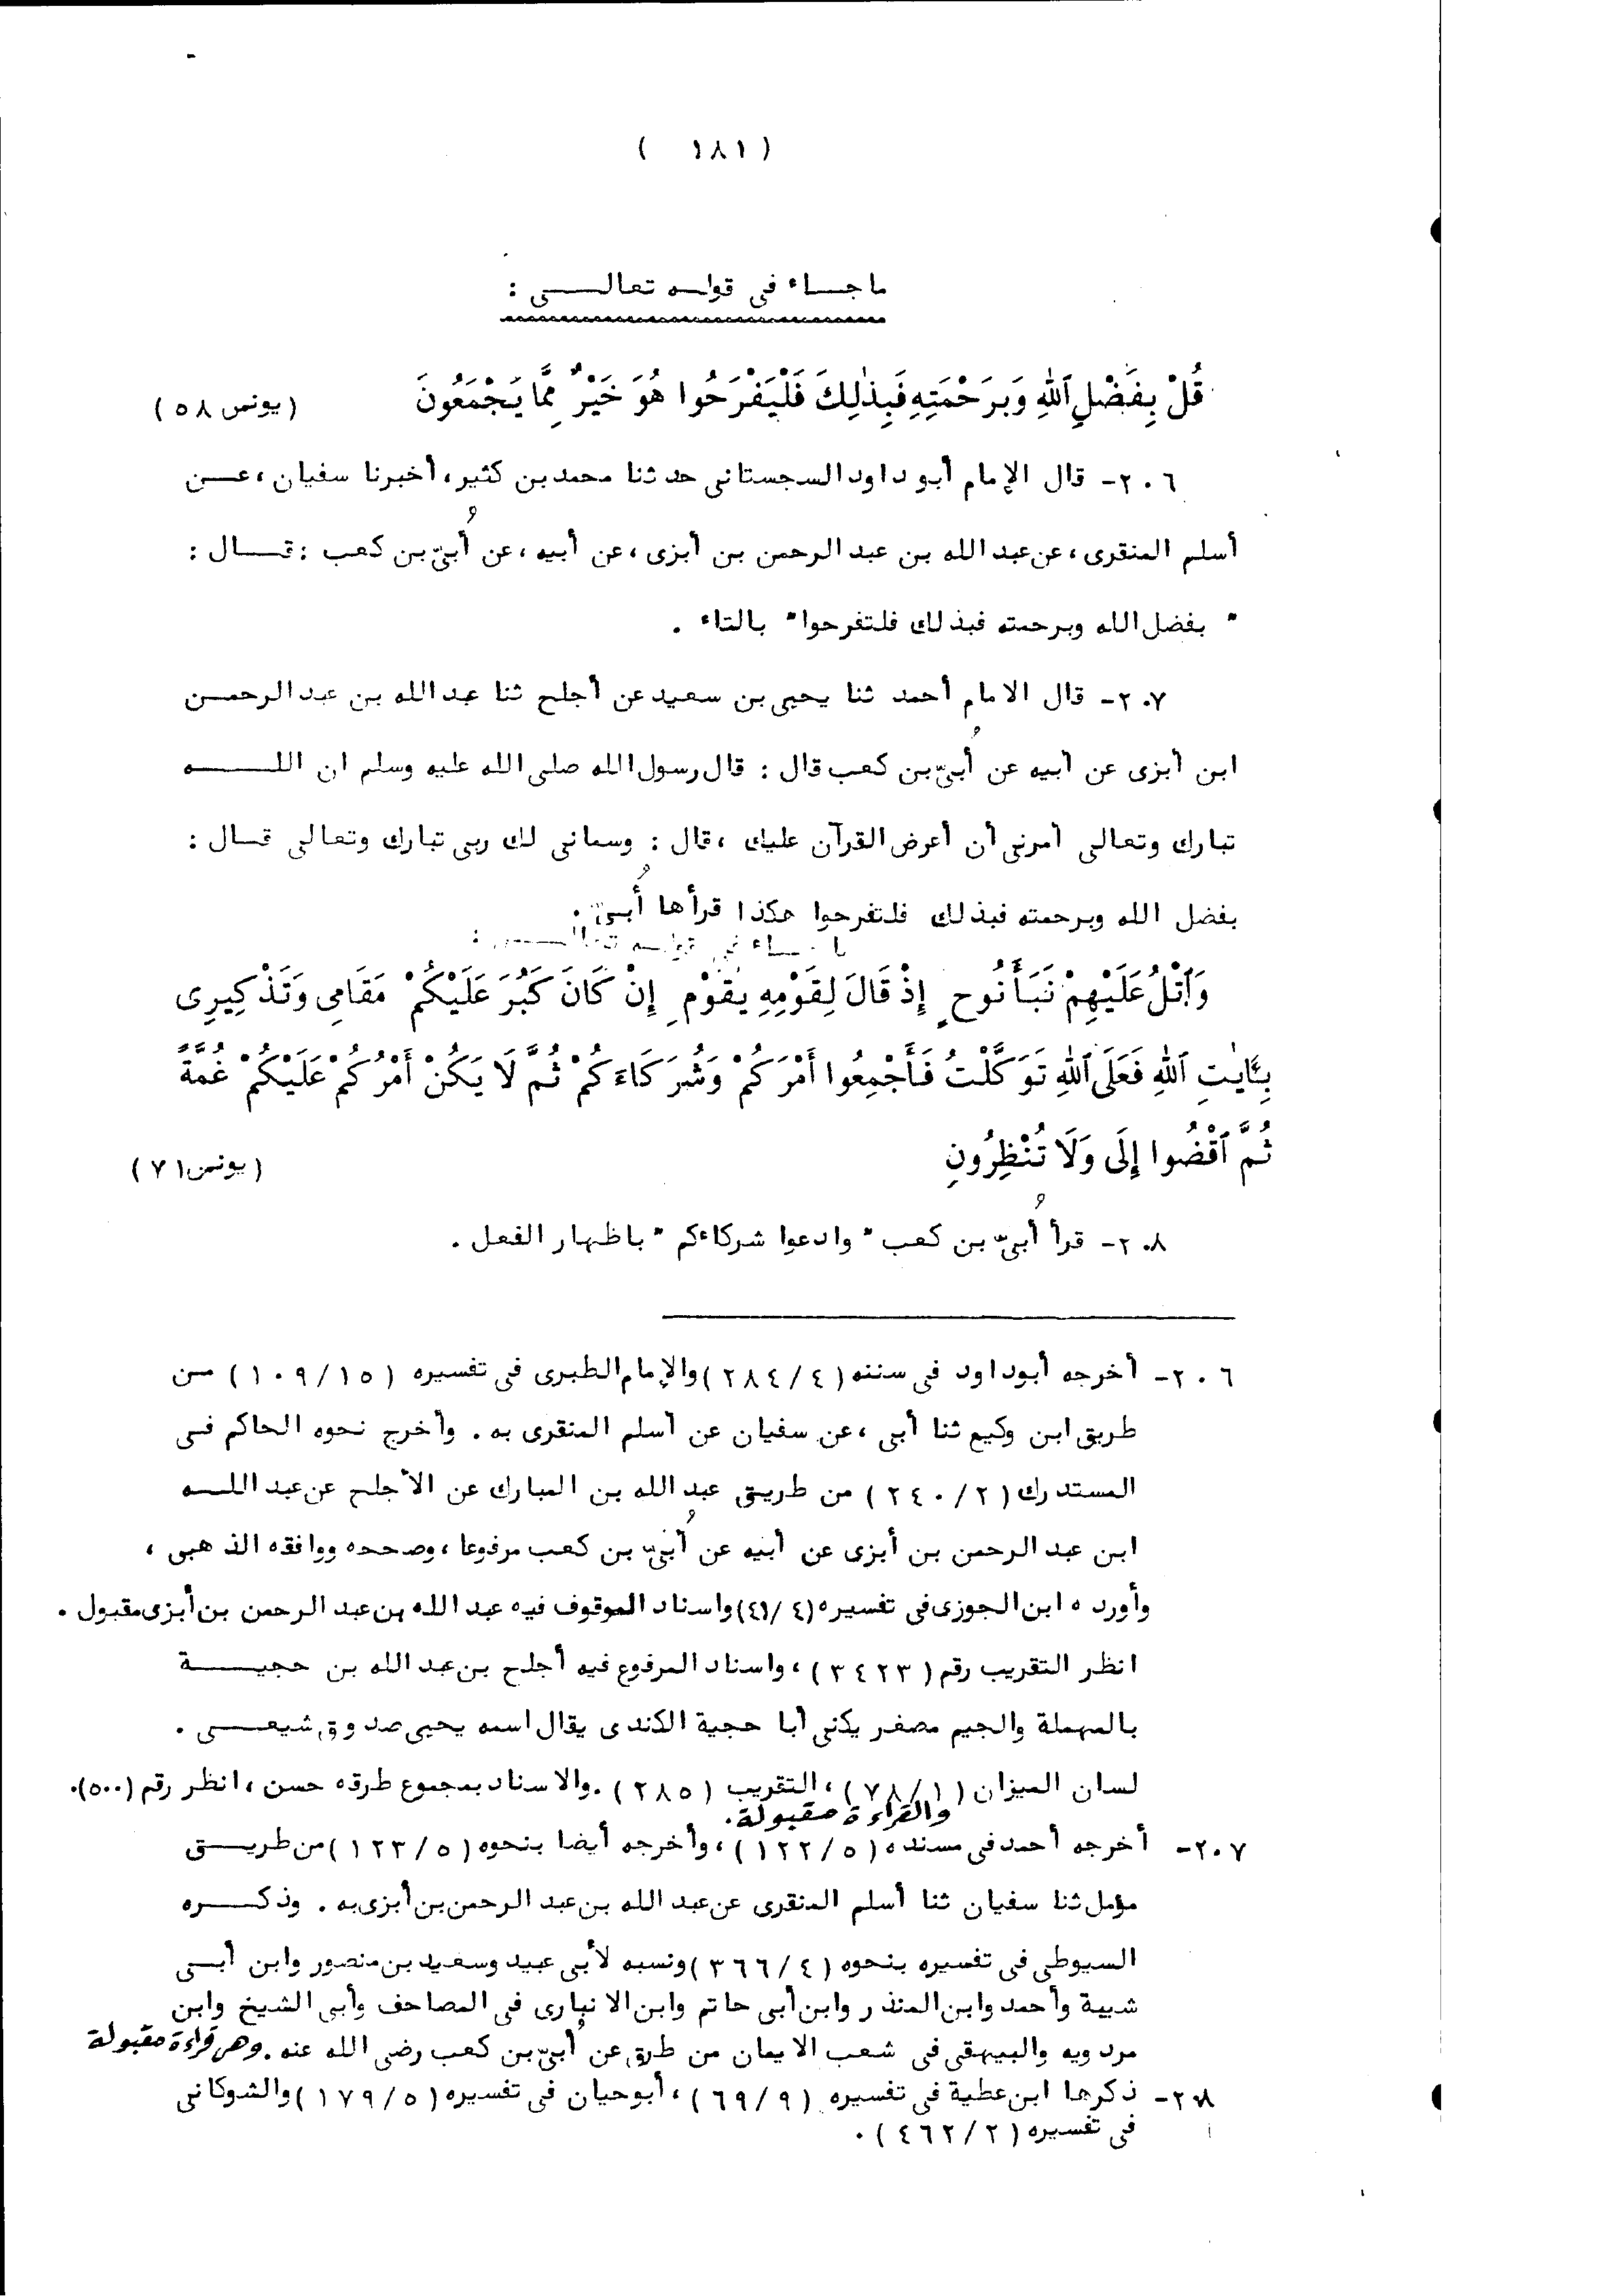 ( ١٨١ )
ماجاء فى قوله تعالى :
قُلْ بِفَضْلِ ٱللَّهِ وَبِرَحْمَتِهِ فَبِذَٰلِكَ فَلْيَفْرَحُوا هُوَ خَيْرٌ مِمَّا يَجْمَعُونَ (يونس ٥٨)
٢٠٦- قال الإمام أبو داود السجستانى حدثنا محمد بن كثير، أخبرنا سفيان ، عن
أسلم المنقرى ، عن عبد الله بن عبد الرحمن بن أبزى ، عن أبيه ، عن أُبىّ بن كعب : قال :
" بفضل الله وبرحمته فبذلك فلتفرحوا " بالتاء .
٢٠٧- قال الامام أحمد ثنا يحيى بن سعيد عن أجلح ثنا عبد الله بن عبد الرحمن
ابن أبزى عن أبيه عن أُبىّ بن كعب قال : قال رسول الله صلى الله عليه وسلم ان الله
تبارك وتعالى أمرنى أن أعرض القرآن عليك ، قال : وسمانى لك ربى تبارك وتعالى قال :
بفضل الله وبرحمته فبذلك فلتفرحوا هكذا قرأها أُبىّ .
ماجاء فى قوله تعالى :
وَٱتْلُ عَلَيْهِمْ نَبَأَ نُوحٍ إِذْ قَالَ لِقَوْمِهِ يَٰقَوْمِ إِنْ كَانَ كَبُرَ عَلَيْكُمْ مَقَامِى وَتَذْكِيرِى
بِـَٔايَٰتِ ٱللَّهِ فَعَلَى ٱللَّهِ تَوَكَّلْتُ فَأَجْمِعُوا أَمْرَكُمْ وَشُرَكَاءَكُمْ ثُمَّ لَا يَكُنْ أَمْرُكُمْ عَلَيْكُمْ غُمَّةً
ثُمَّ ٱقْضُوا إِلَىَّ وَلَا تُنْظِرُونِ (يونس ٧١)
٢٠٨- قرأ أُبىّ بن كعب " وادعوا شركاءكم " باظهار الفعل .
٢٠٦- أخرجه أبو داود فى سننه (٢٨٤/٤) والإمام الطبرى فى تفسيره (١٠٩/١٥) من
طريق ابن وكيع ثنا أبى ، عن سفيان عن أسلم المنقرى به . وأخرج نحوه الحاكم فى
المستدرك (٢٤٠/٢) من طريق عبد الله بن المبارك عن الأجلح عن عبد الله
ابن عبد الرحمن بن أبزى عن أبيه عن أُبىّ بن كعب مرفوعا ، وصححه ووافقه الذهبى ،
وأورده ابن الجوزى فى تفسيره (٤١/٤) واسناد الموقوف فيه عبد الله بن عبد الرحمن بن أبزى مقبول .
انظر التقريب رقم (٣٤٢٣) ، واسناد المرفوع فيه أجلح بن عبد الله بن حجية
بالمهملة والجيم مصغر يكنى أبا حجية الكندى يقال اسمه يحيى صدوق شيعى .
لسان الميزان (٧٨/١) ، التقريب (٢٨٥) . والاسناد بمجموع طرقه حسن ، انظر رقم (٥٠٠).
والقراءة مقبولة.
٢٠٧- أخرجه أحمد فى مسنده (١٢٢/٥) ، وأخرجه أيضا بنحوه (١٢٣/٥) من طريق
مؤمل ثنا سفيان ثنا أسلم المنقرى عن عبد الله بن عبد الرحمن بن أبزى به . وذكره
السيوطى فى تفسيره بنحوه (٣٦٦/٤) ونسبه لأبى عبيد وسعيد بن منصور وابن أبى
شيبة وأحمد وابن المنذر وابن أبى حاتم وابن الانبارى فى المصاحف وأبى الشيخ وابن
مردويه والبيهقى فى شعب الايمان من طرق عن أُبىّ بن كعب رضى الله عنه . وهى قراءة مقبولة
٢٠٨- ذكرها ابن عطية فى تفسيره (٦٩/٩) ، أبو حيان فى تفسيره (١٧٩/٥) والشوكانى
فى تفسيره (٤٦٢/٢) .